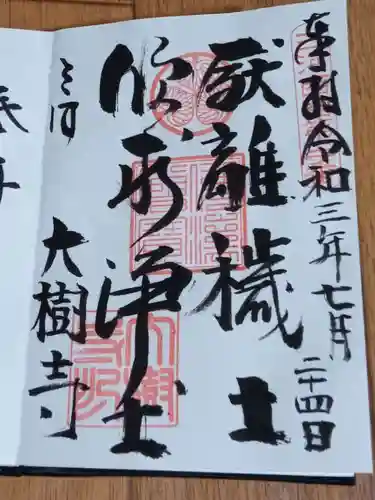 奉拝 令和三年七月二十四日
厭離穢土
欣求浄土
三河 大樹寺